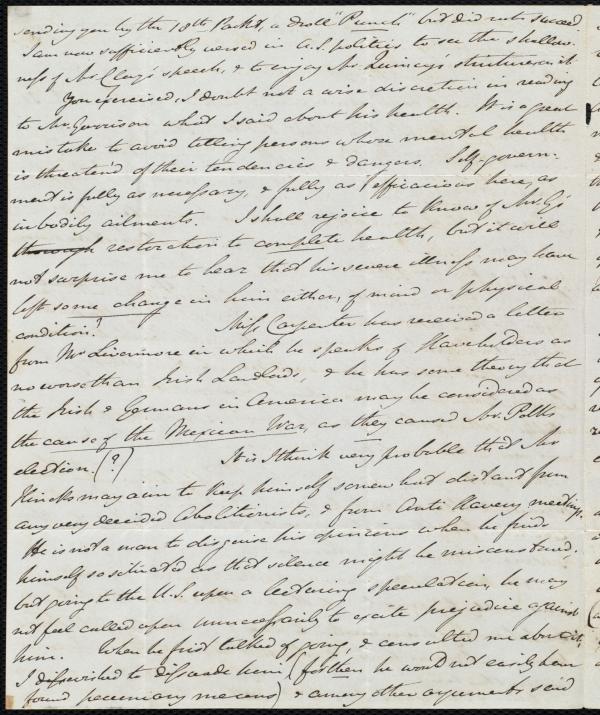 sending you by the 18th Packet, a droll "Punch" but did not succeed
I am now sufficiently versed in A.S. politics to see the shallow-
ness of Mr Clay's speech, & to enjoy Mr Quincy's strictures on it
You exercised, I doubt not a wise discretion in reading
to Mr Garrison what I said about his health. It is a great
mistake to avoid telling persons whose mental health
is threatend of their tendencies & dangers. Self-govern-
ment is fully as necessary, & fully as efficacious here, as
in bodily ailments. I shall rejoice to know of Mr G's
through restoration to complete health, but it will
not surprise me to hear that his severe illness may have
left some change in him either, of mind or physical
condition! Miss Carpenter has received a letter
from Mr Livermore in which he speaks of Slaveholders as
no worse than Irish Landlords, & he has some theory that
the Irish & Germans in America may be considered as
the cause of the Mexican War, as they caused Mr. Polk's
election. (?) It is I think very probable that Mr
Hincks may aim to keep himself somewhat distant from
any very decided Abolitionists, & from Anti Slavery meetings.
He is not a man to disguise his opinions when he finds
himself so situated as that silence might be misconstrued,
but going to the U.S. upon a lecturing speculation, he may
not feel called upon unnecessarily to excite prejudice against
him. When he first talked of going, & consulted me about it,
I wished to dissuade him (for then he would not easily have
found pecuniary means) & among other arguments said